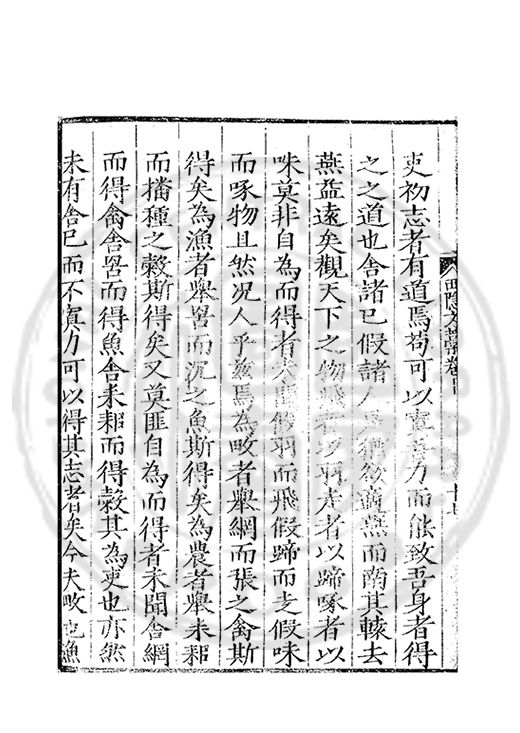 吏初志者有道焉苟可以寘吾力而能致吾身者得
之之道也舍諸已假諸人是猶欲適燕而南其轅去
燕益遠矣觀天下之物飛者以羽走者以蹄啄者以
咮莫非自為而得者未聞假羽而飛假蹄而走假咮
而啄物且然况人乎兹焉為畋者舉網而張之禽斯
得矣為漁者舉罟而沉之魚斯得矣為農者舉耒耜
而播種之穀斯得矣又莫匪自為而得者未聞舍網
而得禽舍罟而得魚舍耒耜而得穀其為吏也亦然
未有舍已而不寘力可以得其志者矣今夫畋也漁